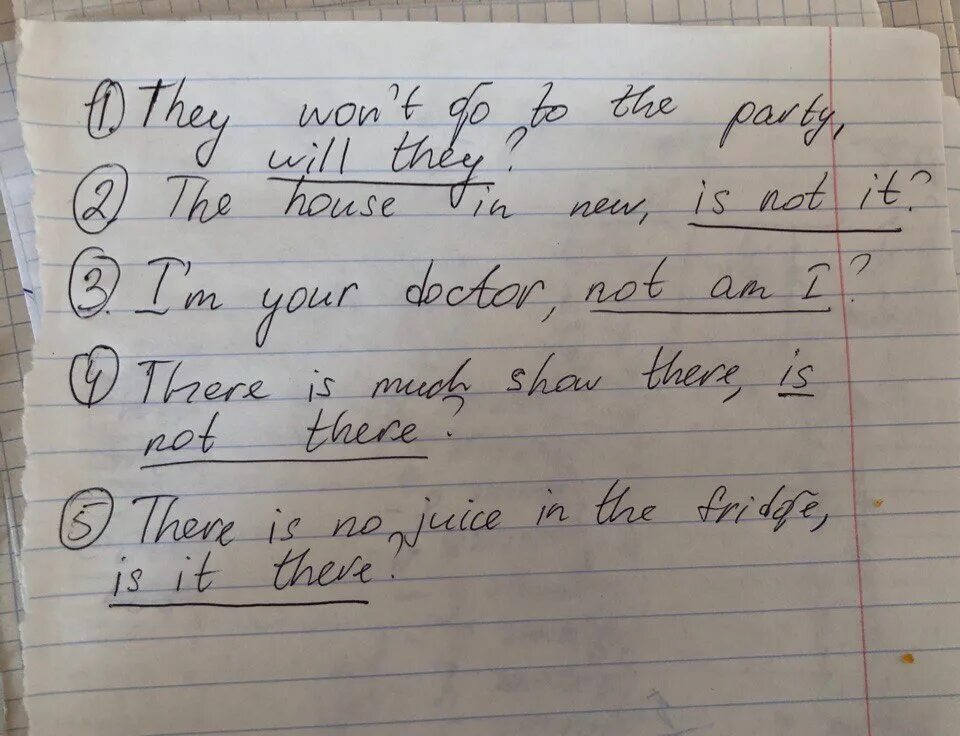 1. They won't go to the party,
will they?
2 The house in new, is not it?
3. I'm your doctor, not am I?
4 There is much show there, is
not there?
5 There is no juice in the fridge,
is it there?